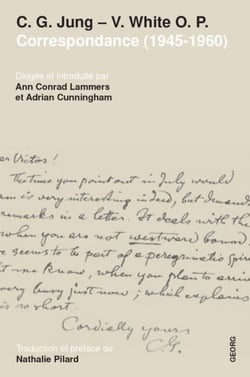 C. G. Jung – V. White O. P.
Correspondance (1945-1960)
Dirigée et introduite par
Ann Conrad Lammers
et Adrian Cunningham
ear Victor!
The time you point out in July would
is very interesting indeed, but demand
remarks in a letter. It deals with the
when you are not westward bound.
seems to be part of a peregrinatio spir
me know, when you plan to arriv
very busy just now; which explains
is so short.
Cordially yours
C.G.
Traduction et préface de
Nathalie Pilard
GEORG